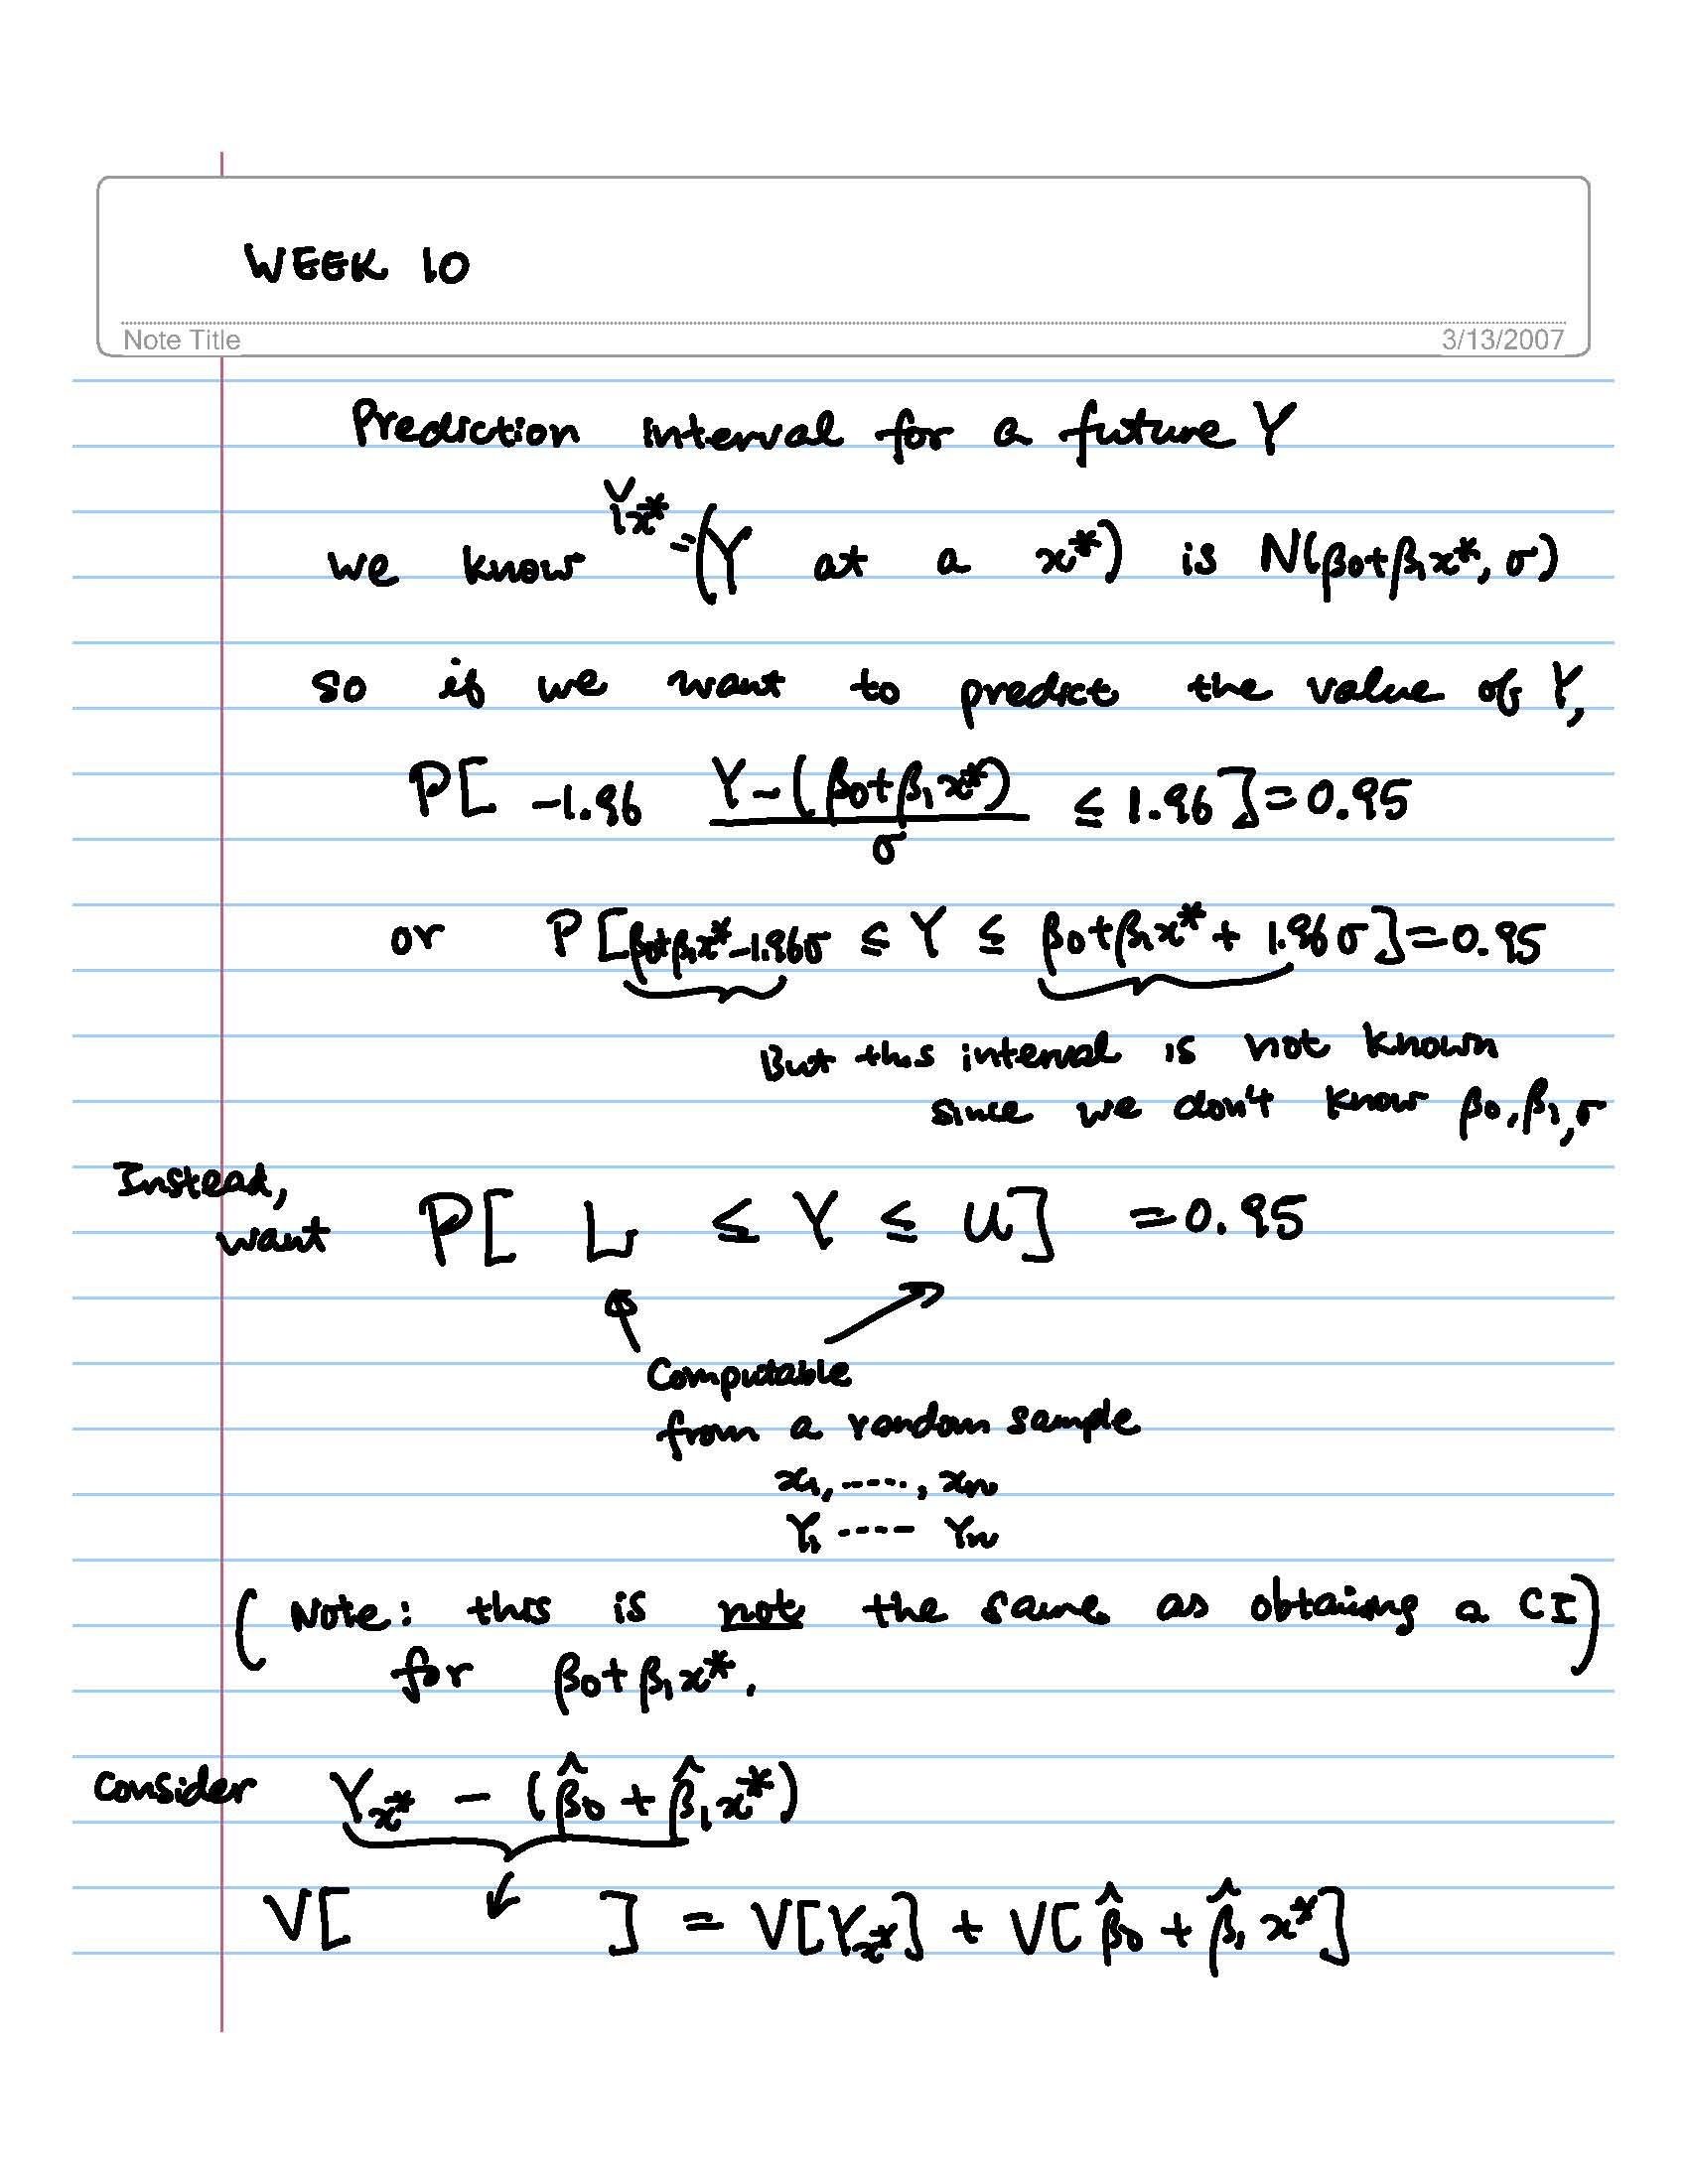 WEEK 10
Note Title 3/13/2007
Prediction interval for a future Y
we know Yx* = (Y at a x*) is N(β0+β1x*, σ)
so if we want to predict the value of Y,
P[ -1.96 Y-(β0+β1x*)/σ ≤ 1.96 ] = 0.95
or P[β0+β1x*-1.96σ ≤ Y ≤ β0+β1x*+ 1.96σ] = 0.95
But this interval is not known
since we don't know β0, β1, σ
Instead,
want P[ L ≤ Y ≤ U] = 0.95
Computable
from a random sample
x1, ....., xn
Y1 ---- Yn
(Note: this is not the same as obtaining a CI)
for β0+β1x*.
Consider Yx* - (β̂0 + β̂1x*)
V[ ] = V[Yx*] + V[β̂0 + β̂1x*]